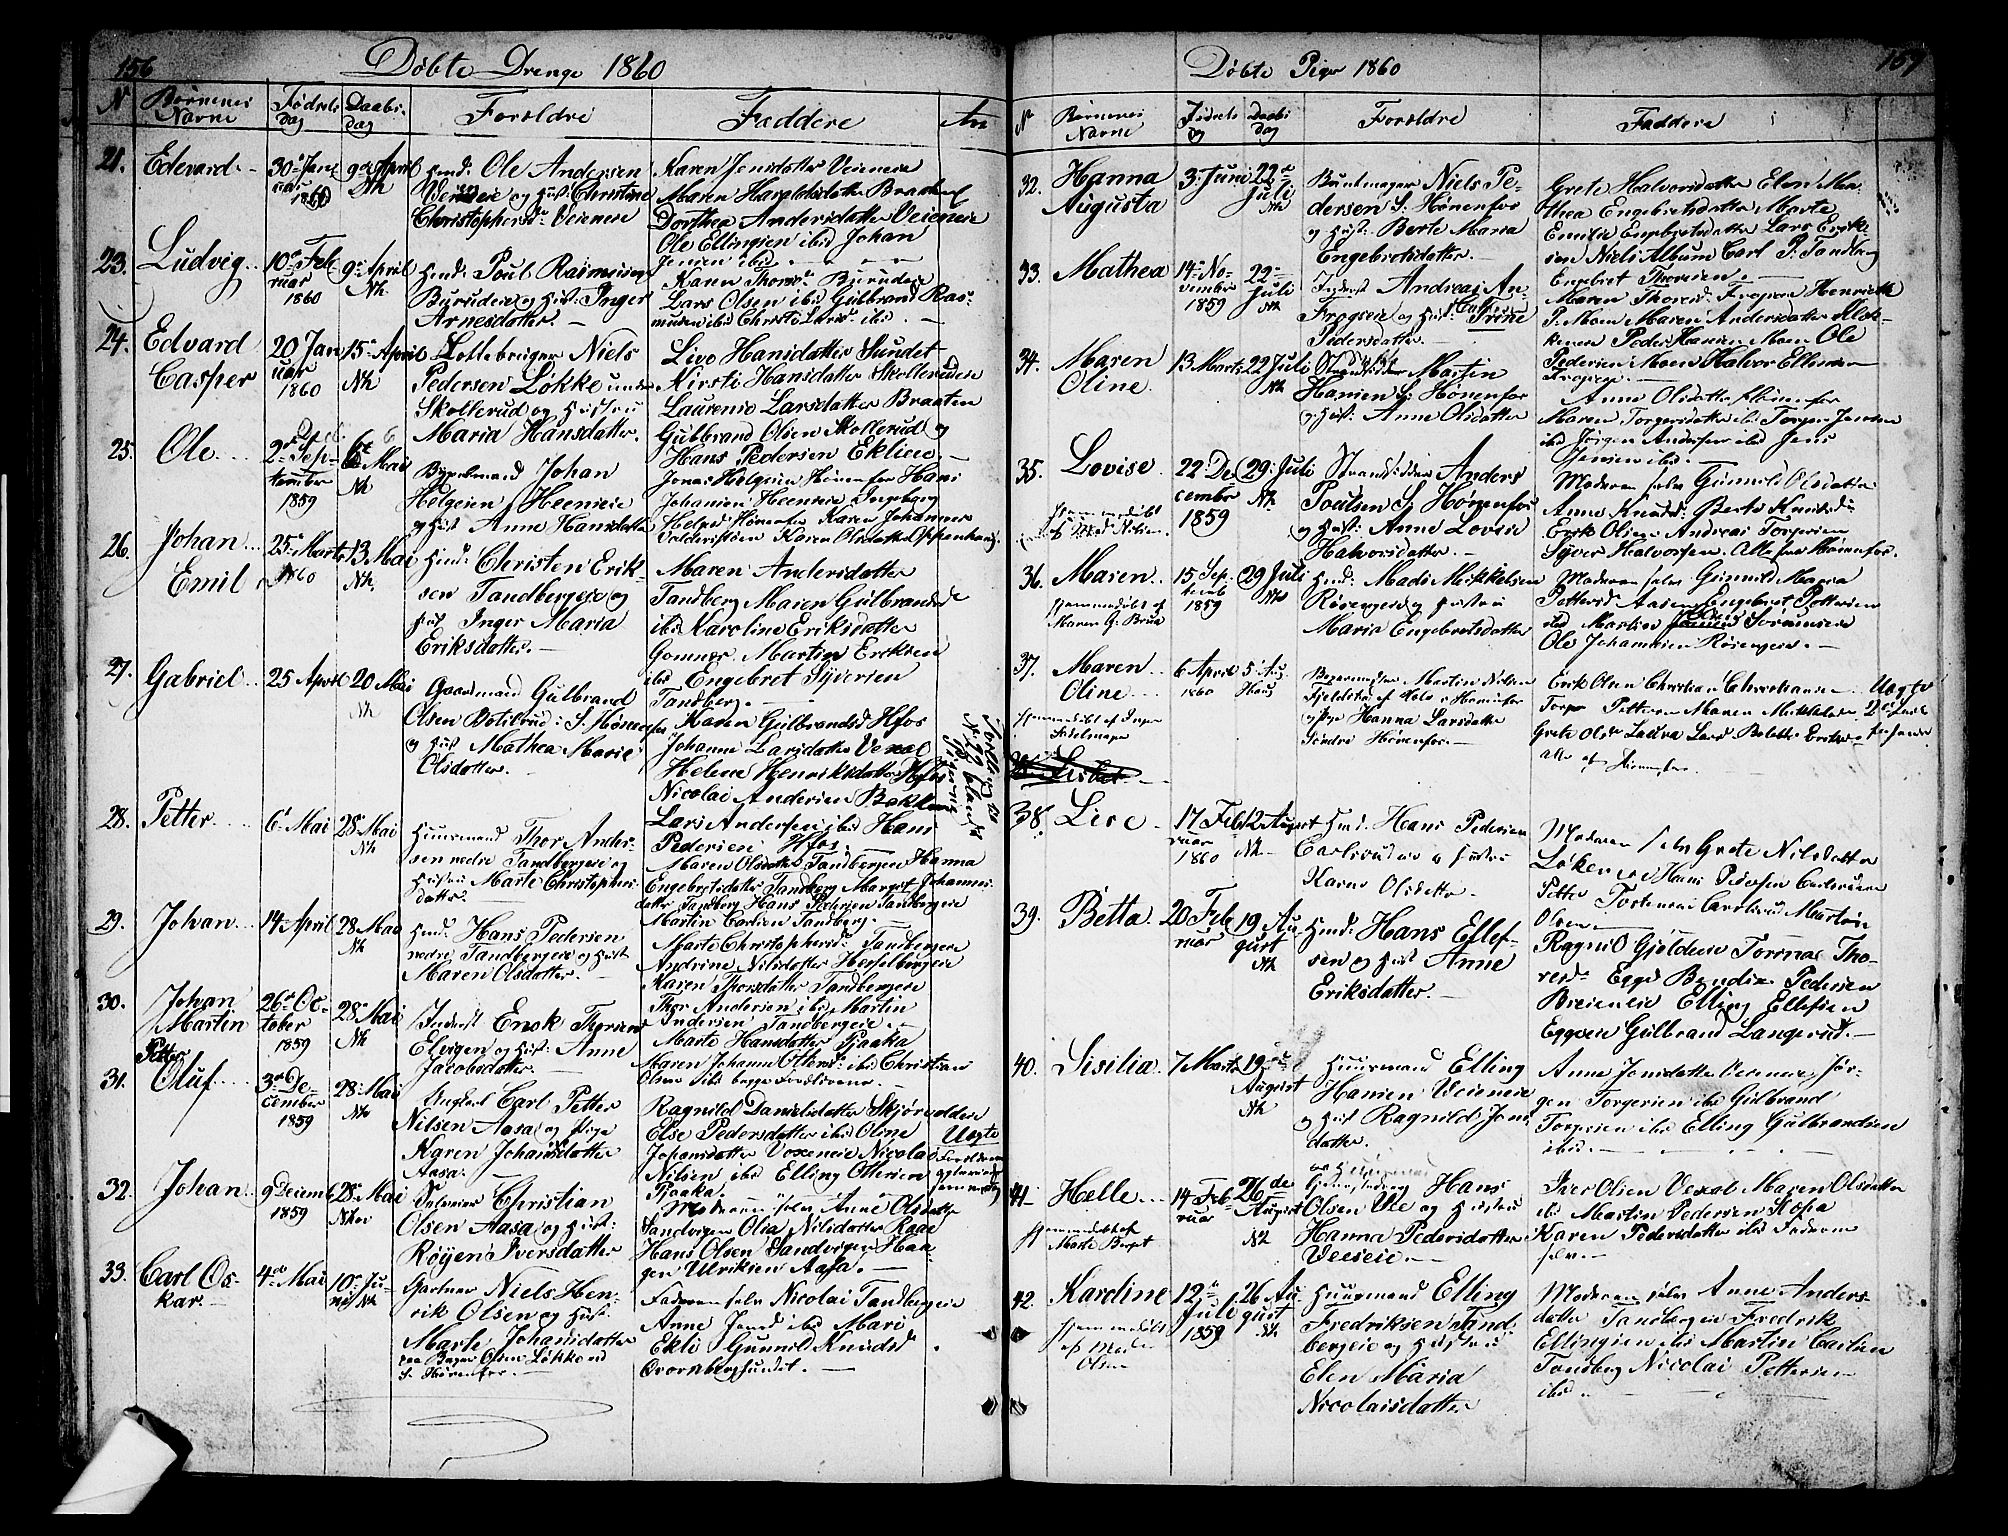 156
Döbte Drenge 1860
N Børnenes Navne Fødsels Dag Daabs Dag Forældre Faddere An
21. Edevard 30te Januar 1860 9de April Nk
Hmd: Ole Andersen
Veieneie og Hust: Christine
Christophersdr Veieneie
Karen Jensdatter Veieneie
Maren Haraldsdatter Braaten
Dorthea Andersdatter Veieneie
Ole Ellingsen ibid Johan
Jensen ibid
23. Ludvig 10de Februar 1860 9de April Nk
Hmd: Poul Rasmussen
Burudeie og Hust: Inger
Arnesdatter.
Karen Thorsdr Burudeie
Lars Olsen ibid Gulbrand Rasmussen
ibid Christi Larsdr ibid.
24. Edvard Casper 20 Januar 1860 15de April Nk
Niels
Pedersen Løkke under
Skollerud og Hustru
Maria Hansdatter.
Live Hansdatter Sundet
Kirsti Hansdatter Skollerudeie
Laurense Larsdatter Braaten
Gulbrand Olsen Skollerud og
Hans Pedersen Eklieie.
25. Ole 2de September 1859 6te Mai Nk
Johan
Helgesen Heeneie
og Hust Anne Hansdatter
Jonas Helgesen Hønenfos Hans
Johansen Heeneie Ingeborg
Hønenfos Karen Johannes
Karen Olsdatter Oppenhang.
26. Johan Emil 25de Marts 1860 13 Mai Nk.
Hmd: Christen Eriksen
Tandbergeie og
Hust Inger Maria
Eriksdatter.
Maren Andersdatter
Tandberg Maren Gulbrandsd
ibid Karoline Eriksdatter
Gomnes Martin Eriksen
ibid Engebret Syversen
Tandberg.
27. Gabriel 25 April 20 Mai Nk
Gaardmand Gulbrand
Olsen Botilrud S. Hønenfos
og Hust Mathea Marie
Olsdatter.
Karen Gulbrandsd Hfos
Johanne Larsdatter Vexal
Helene Henriksdatter Hfos
Nicolai Andersen Bakke
Lars Andersen ibid Hans
Pedersen Hfos.
28. Petter 6te Mai 28de Mai Nk
Huusmand Thor Andersen
nedre Tandbergeie og
Hustru Marte Christophersdatter.
Maren Olsdatter Tandbergeie Hanna
Engebretsdatter Tandberg Margit Johannesdatter
Tandberg Hans Pedersen Tandbergeie
Martin Carlsen Tandberg.
29. Johan 14 April 28 Mai Nk
Hmd: Hans Pedersen
nedre Tandbergeie og Hust
Maren Olsdatter.
Marte Christophersdr Tandbergeie
Andrine Nilsdatter Hesselbergeie
Karen Thorsdatter Tandbergeie
Thor Andersen ibid Martin
Andersen Tandbergeie.
30. Johan Martin 26de October 1859 28de Mai Nk
Inderst Enok Thorsen
Elvigen og Hust: Anne
Jacobsdatter.
Marte Hansdatter Pjaaka
Maren Johanne Ottersdr ibid Christian
Olsen ibid begge Forældrene
31. Petter Oluf 3de December 1859 28de Mai Nk
Ungkarl Carl Petter
Nilsen Aasa og Pige
Karen Johansdatter
Aasa.
Ragnild Danielsdatter Skjørvoldeie
Else Pedersdatter ibid Oline
Johansdatter Voxeneie Nicolai
Nilsen ibid Elling Ottersen
Pjaaka.
Uægte
32. Johan 9 Decemb 1859 28de Mai Nk
Selveier Christian
Olsen Aasa og Hust:
Røyen Iversdatter
Moderen selv Anne Olsdatter
Sandvigen Olia Nilsdatter Raae
Hans Olsen Sandvigen Haagen
Ulriksen Aasa.
33. Carl Oskar 4de Mai 10de Juni Nk
Gartner Niels Henrik
Olsen og Hust
Marte Johansdatter
paa Olsen Løkke ved
S. Hønenfos.
Faderen selv Nicolai Tandbergeie
Anne Jensd ibid Mari
Ekli Gunnild Knudsd
Tvornbergsundet.

159
Döbte Piger 1860
N Børnenes Navne Fødsels Dag Daabs Dag Forældre Faddere
32. Hanna Augusta 3de Juni 22de Juli Nk
Buntmager Niels Pedersen
S. Hønenfos
og Hust: Berte Maria
Engebretsdatter.
Grete Halvorsdatter Elen Mathea
Engebretsdatter Marte
Emilie Engebretsdatter Lars Eriksen
Niels Album Carl P. Tandberg
Engebret Thoresen.
33. Mathea 14de November 1859 22de Juli Nk
Inderst Andreas
Frogseie og Hust: Trine
Pedersdatter.
Maren Thoresd: Frogseie Henrik
P. Moen Maren Andersdatter
Peder Hansen Moen Ole
Pedersen Moen Halvor Ellensen
Frogseie.
34. Maren Oline. 13 Marts 22 Juli Nk
Strandsidder Martin
Hansen S. Hønenfos
og Hust: Anne Olsdatter
Anne Olsdatter Hønenfos
Maren Torgersdatter ibid Torger Jensen
ibid Jørgen Andersen ibid Jens
Jensen ibid.
35. Lovise 22 December 1859 29de Juli Nk.
Strandsidder Anders
Poulsen S. Hønenfos
og Hust: Anne Lovise
Halvorsdatter.
Moderen selv Gunnild Olsdatter
Anne Knudsd: Berte Knudsdr
Erik Olsen Andreas Torgersen
Syver Halvorsen. Alle fra Hønenfos.
36. Maren 15 Septemb 1859 29 Juli Nk
hjemmedøbt af
Maren G. Brua
Hmd: Mads Mikkelsen
Røsengeie og Hustru
Maria Engebretsdatter
Moderen selv Gunnild Maria
Pettersd Aasen Engebret Pettersen
ibid Martin Sørensen
Ole Johannsen Røsengeie.
37. Maren Oline 6 April 1860 5de Aug. Haug
hjemmedøbt af Inger
Martin Nilsen
Fjeldstad af Hole Hønenfos
og Pige Hanna Larsdatter
Søndre Hønenfos.
Erik Olsen Christian Christiansen
Torger Pettersen Maren Mikkelsdatter
Grete Olsdr Lovisa Larsd Bolette Eriksd
alle af Hønenfos.
Uægte
38. Lise 17 Februar 1860 12 August Nk
Hmd. Hans Pedersen
Carlsrudeie og Hustru
Karen Olsdatter.
Moderen selv Grete Nilsdatter
Løkeneie Hans Pedersen Carlsrudeie
Petter Torstensen Carlsrud Martin
Olsen
39. Betta 20 Februar 19 August Nk
Hmd: Hans Ellefsen
og Hust Anne
Eriksdatter.
Ragnild Gjoldeie Thoresdr
Egge Bendix Pedersen
Breieneie Elling Ellefsen
Eggeeie Gulbrand Langerud.
40. Sisilia 7 Marts 19de August Nk
Huusmand Elling
Hansen Veieneie
og Hust Ragnild Jonsdatter.
Anne Jonsdatter Veieneie Jørgen
Torgersen ibid Gulbrand
Torgersen ibid Elling Gulbrandsen
ibid.
41. Helle 14 Februar 26de August Nk
hjemmedøbt af
Marte Berget
Hans
Olsen Vee og Hustru
Hanna Pedersdatter
Veeseie.
Iver Olsen Vexal Maren Olsdatter
ibid Martin Pedersen Kopa
Karen Pedersdatter ibid Faderen
selv.
42. Karoline 12te Juli 1859 26 August Nk
hjemmedøbt
af
Olsen
Huusmand Elling
Fredriksen Tandbergeie
og Hustru
Elen Maria
Nicolaisdatter
Moderen selv Anne Andersdatter
Tandbergeie Fredrik
Ellingsen ibid Martin Carlsen
Tandberg Nicolai Pettersen
ibid.